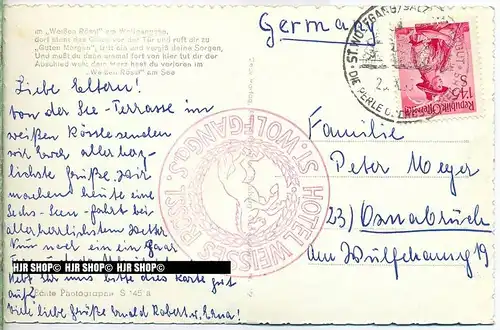 Im „Weißen Rössl" am Wolfgangsee,
dort steht das Glück vor der Tür und ruft dir zu
„Guten Morgen", tritt ein und vergiß deine Sorgen,
Und mußt du dann einmal fort von hier tut dir der
Abschied weh; dein Herz hast du verloren im
„Weißen Rössl" am See
Liebe Eltern!
Von der See-Terrasse im
weißen Rössle senden
wir Euch aller herz-
lichste Grüße. Wir
machen heute eine
Sechs-Seen-Fahrt bei
allerherrlichstem Wetter.
Nun noch ein paar
hebt für uns bitte diese Karte gut
auf!
Viele liebe Grüße Robert u. Erna!
HJR SHOP© HJR SHOP© HJR SHOP©
Echte Photographie S 145 a
ST. WOLFGANG
HOTEL WEISSES RÖSSL
Germany
ST. WOLFGANG
DIE PERLE
S 1'45
Republik Österreich
Familie
Peter Meyer
(23) Osnabrück
Am Wulfshang 19
HJR SHOP©